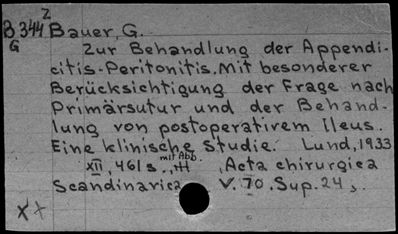 Z
B 344 Bauer, G.
G
Zur Behandlung der Appendi-
citis-Peritonitis. Mit besonderer
Berücksichtigung der Frage nach
Primärsutur und der Behand-
lung von postoperativem Ileus.
Eine klinische Studie. Lund, 1933
mit Abb.
XII, 461 s., , Acta chirurgica
Scandinavica V. 70. Sup. 24.
XX